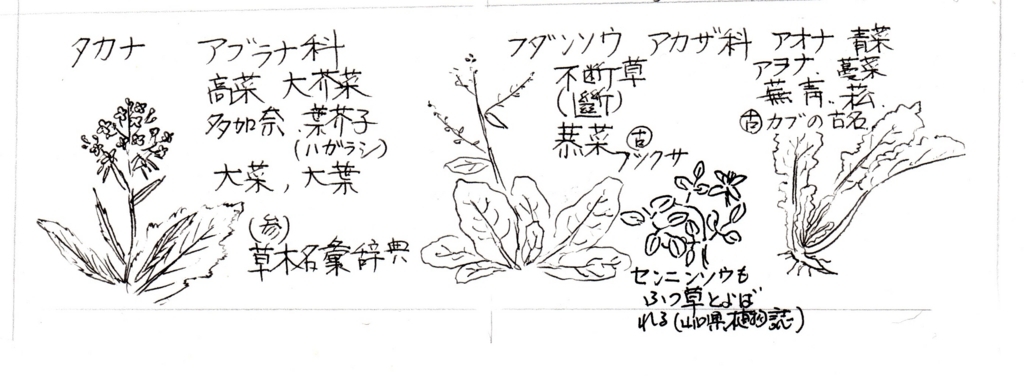 タカナ アブラナ科
高菜 大芥菜
多加奈、葉芥子
(ハガラシ)
大菜，大葉
(参)
草木名彙辞典
フダンソウ アカザ科
不断草
(斷)
恭菜 古
フツクサ
センニンソウも
ふつ草とよば
れる(山口県植物誌)
アオナ 青菜
アヲナ、蔓菜
蕪青、菘、
古カブの古名